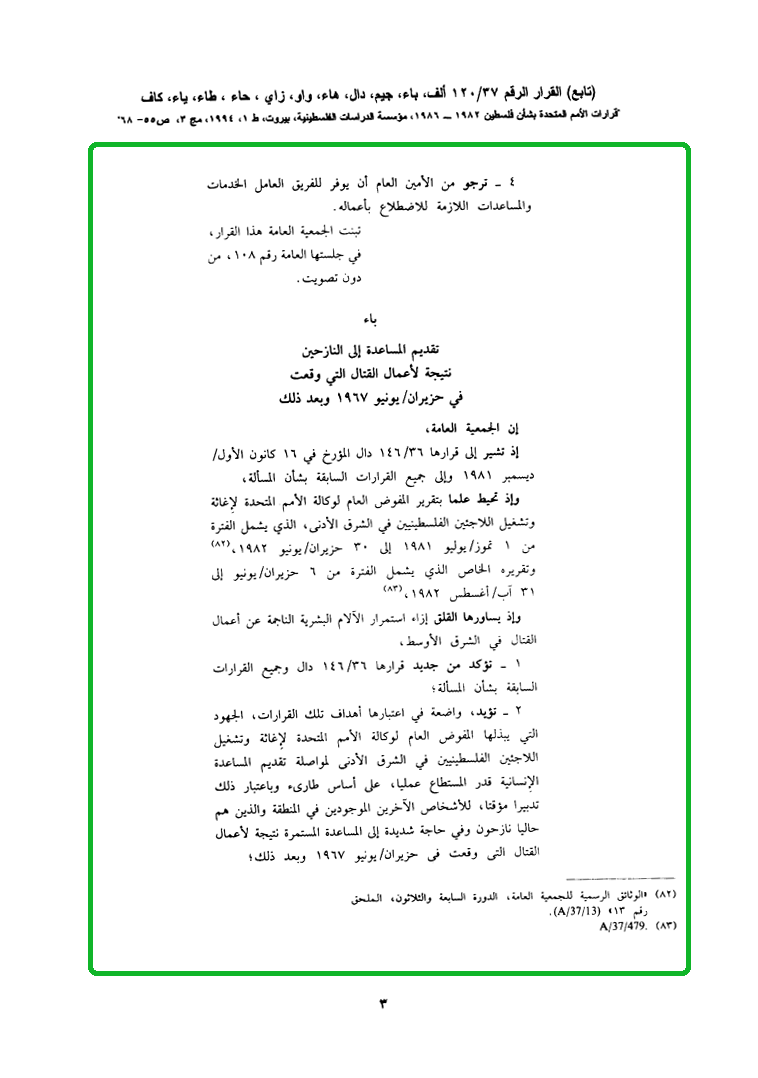 (تابع) القرار الرقم ١٢٠/٣٧ ألف، باء، جيم، دال، هاء، واو، زاي ، حاء ، طاء، ياء، كاف
"قرارات الأمم المتحدة بشأن فلسطين ١٩٨٢ ــ ١٩٨٦، مؤسسة الدراسات الفلسطينية، بيروت، ط ١، ١٩٩٤، مج ٣، ص٥٥- ٦٨"
٤ ــ ترجو من الأمين العام أن يوفر للفريق العامل الخدمات
والمساعدات اللازمة للاضطلاع بأعماله.
تبنت الجمعية العامة هذا القرار،
في جلستها العامة رقم ١٠٨، من
دون تصويت.
باء
تقديم المساعدة إلى النازحين
نتيجة لأعمال القتال التي وقعت
في حزيران/ يونيو ١٩٦٧ وبعد ذلك
إن الجمعية العامة،
إذ تشير إلى قرارها ١٤٦/٣٦ دال المؤرخ في ١٦ كانون الأول/
ديسمبر ١٩٨١ وإلى جميع القرارات السابقة بشأن المسألة،
وإذ تحيط علما بتقرير المفوض العام لوكالة الأمم المتحدة لإغاثة
وتشغيل اللاجئين الفلسطينيين في الشرق الأدنى، الذي يشمل الفترة
من ١ تموز/يوليو ١٩٨١ إلى ٣٠ حزيران/يونيو ١٩٨٢،(٨٢)
وتقريره الخاص الذي يشمل الفترة من ٦ حزيران/يونيو إلى
٣١ آب/أغسطس ١٩٨٢،(٨٣)
وإذ يساورها القلق إزاء استمرار الآلام البشرية الناجمة عن أعمال
القتال في الشرق الأوسط،
١ ــ تؤكد من جديد قرارها ١٤٦/٣٦ دال وجميع القرارات
السابقة بشأن المسألة؛
٢ ــ تؤيد، واضعة في اعتبارها أهداف تلك القرارات، الجهود
التي يبذلها المفوض العام لوكالة الأمم المتحدة لإغاثة وتشغيل
اللاجئين الفلسطينيين في الشرق الأدنى لمواصلة تقديم المساعدة
الإنسانية قدر المستطاع عمليا، على أساس طارىء وباعتبار ذلك
تدبيرا مؤقتا، للأشخاص الآخرين الموجودين في المنطقة والذين هم
حاليا نازحون وفي حاجة شديدة إلى المساعدة المستمرة نتيجة لأعمال
القتال التي وقعت في حزيران/يونيو ١٩٦٧ وبعد ذلك؛
(٨٢) «الوثائق الرسمية للجمعية العامة، الدورة السابعة والثلاثون، الملحق
رقم ١٣» (A/37/13).
(٨٣) A/37/479.
٣